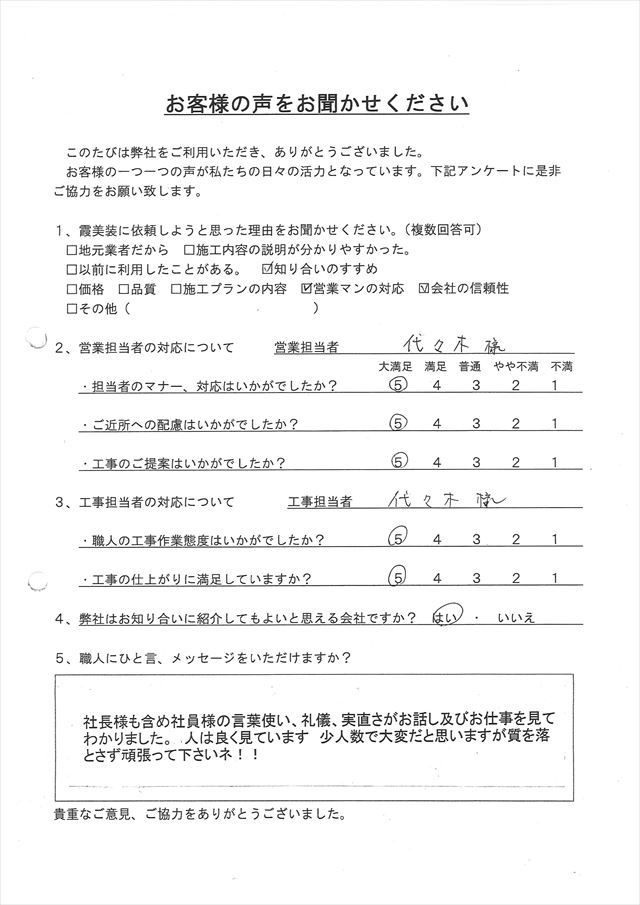 お客様の声をお聞かせください
このたびは弊社をご利用いただき、ありがとうございました。
お客様の一つ一つの声が私たちの日々の活力となっています。下記アンケートに是非
ご協力をお願い致します。
1、霞美装に依頼しようと思った理由をお聞かせください。（複数回答可）
□地元業者だから □施工内容の説明が分かりやすかった。
□以前に利用したことがある。 ☑知り合いのすすめ
□価格 □品質 □施工プランの内容 ☑営業マンの対応 ☑会社の信頼性
□その他（ ）
2、営業担当者の対応について 営業担当者 代々木 様
大満足 満足 普通 やや不満 不満
・担当者のマナー、対応はいかがでしたか？ 5 4 3 2 1
・ご近所への配慮はいかがでしたか？ 5 4 3 2 1
・工事のご提案はいかがでしたか？ 5 4 3 2 1
3、工事担当者の対応について 工事担当者 代々木 様
・職人の工事作業態度はいかがでしたか？ 5 4 3 2 1
・工事の仕上がりに満足していますか？ 5 4 3 2 1
4、弊社はお知り合いに紹介してもよいと思える会社ですか？ はい ・ いいえ
5、職人にひと言、メッセージをいただけますか？
社長様も含め社員様の言葉使い、礼儀、実直さがお話し及びお仕事を見て
わかりました。 人は良く見ています 少人数で大変だと思いますが質を落
とさず頑張って下さいネ！！
貴重なご意見、ご協力をありがとうございました。